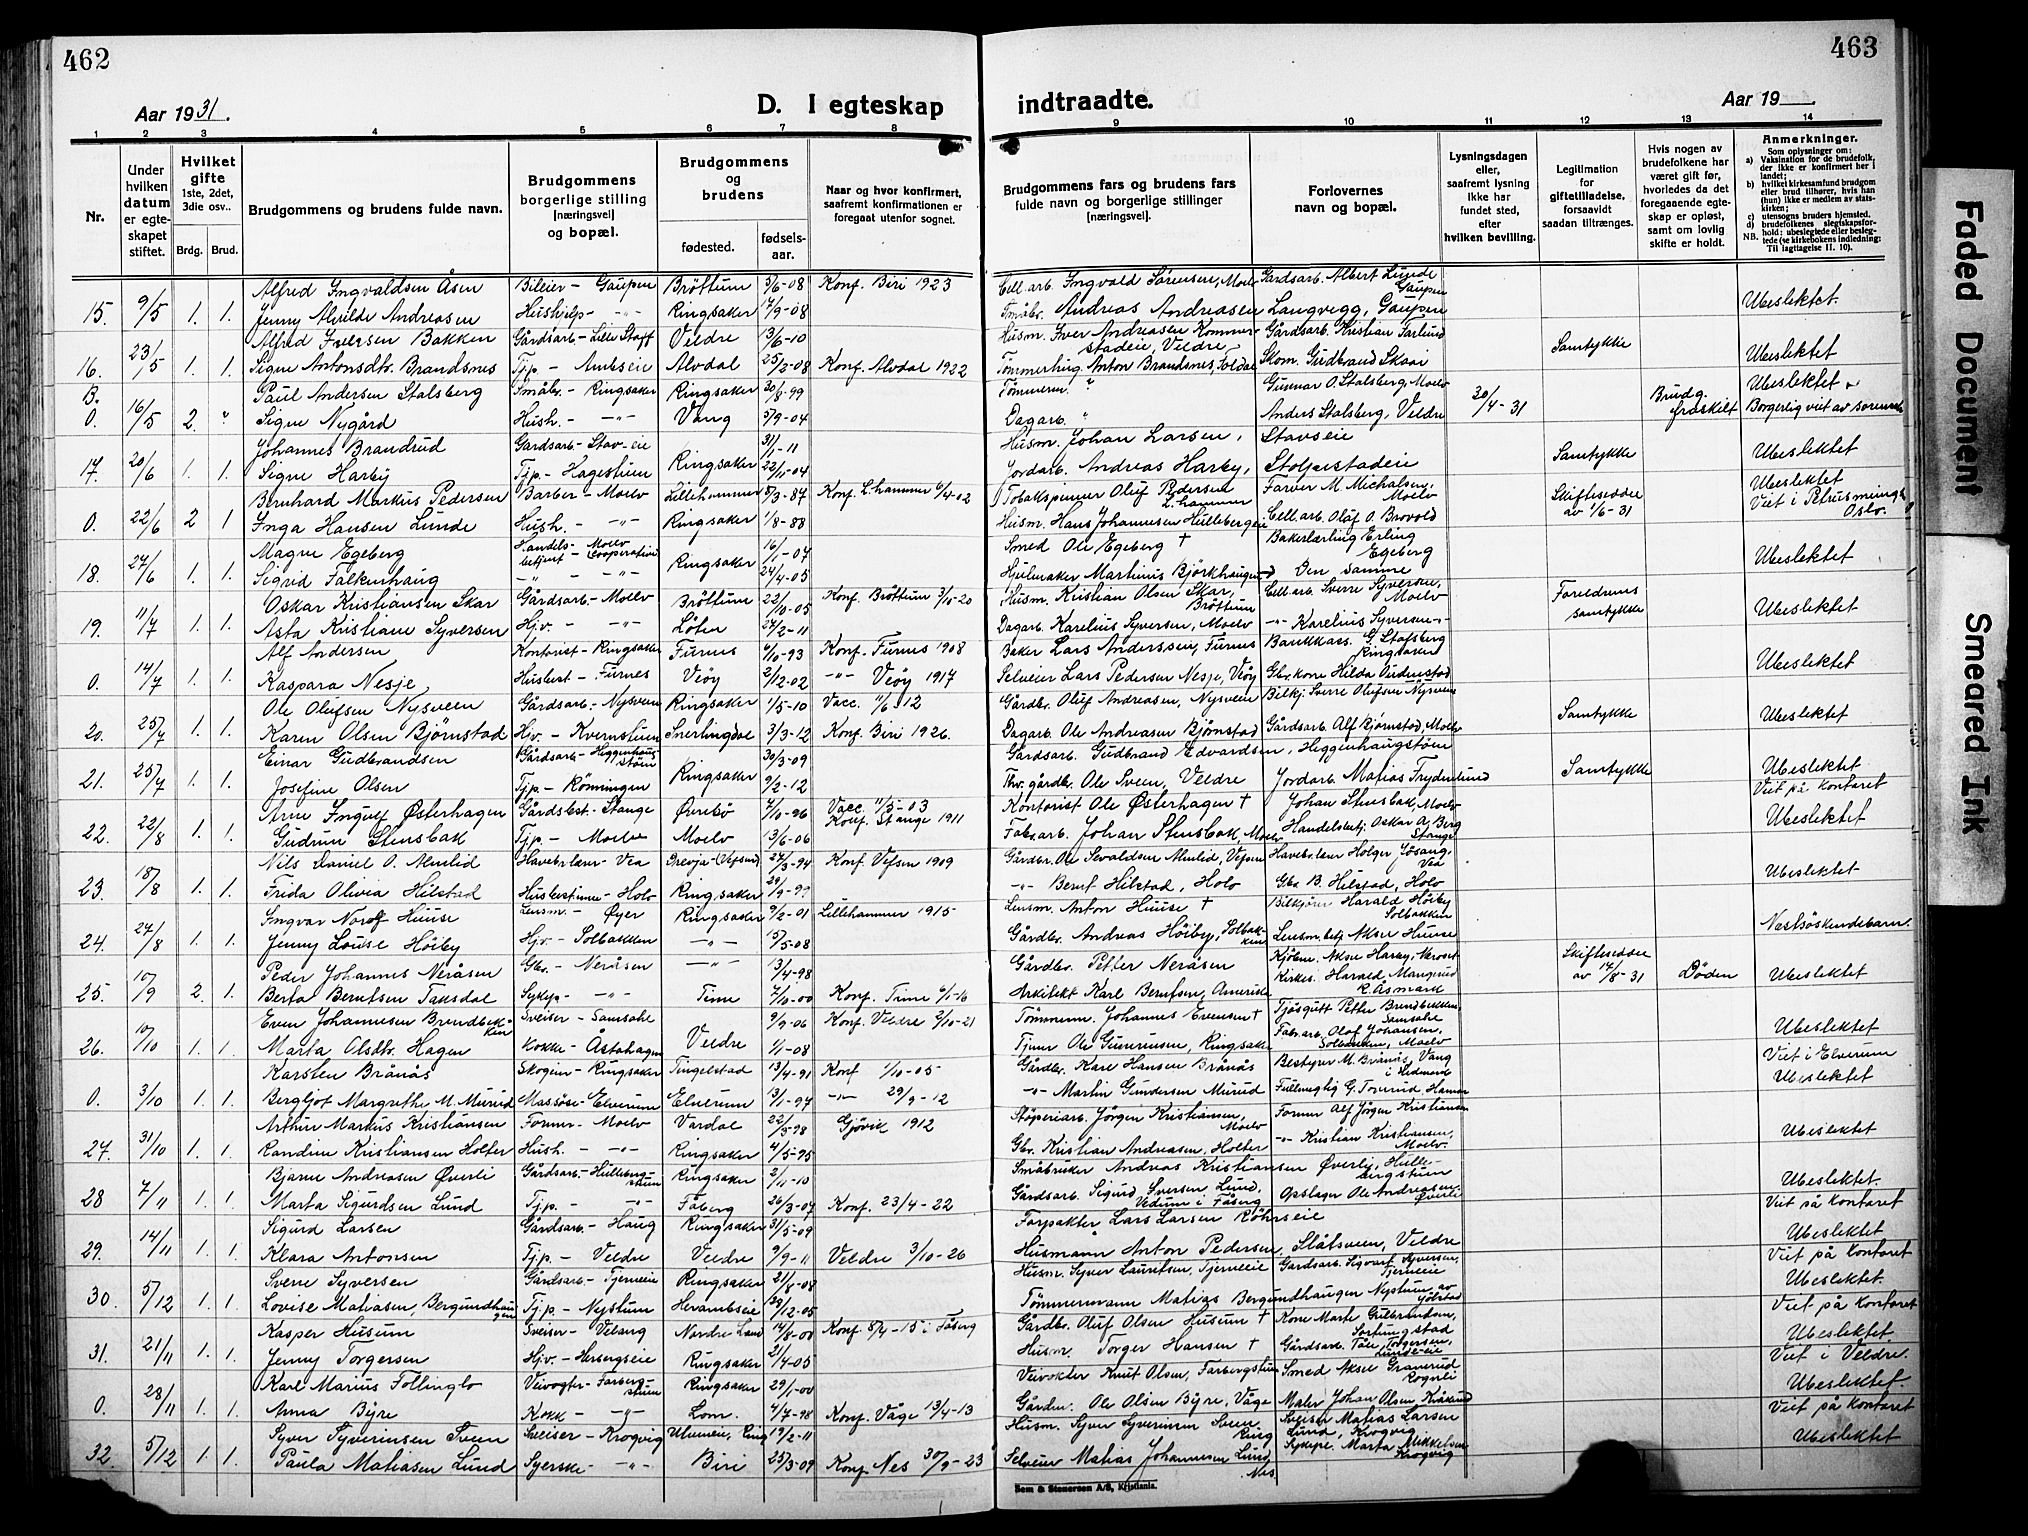 462
463
Aar 1931.
D. I egteskap
indtraadte.
Aar 19 .
1 2 3 4 5 6 7 8 9 10 11 12 13 14
Nr.
Under hvilken datum er egteskapet stiftet.
Hvilket gifte 1ste, 2det, 3die osv..
Brdg. Brud.
Brudgommens og brudens fulde navn.
Brudgommens borgerlige stilling [næringsvei] og bopæl.
Brudgommens og brudens
fødested.
fødselsaar.
Naar og hvor konfirmert, saafremt konfirmationen er foregaat utenfor sognet.
Brudgommens fars og brudens fars fulde navn og borgerlige stillinger [næringsvei].
Forlovernes navn og bopæl.
Lysningsdagen eller, saafremt lysning ikke har fundet sted, efter hvilken bevilling.
Legitimation for giftetilladelse, forsaavidt saadan tiltrænges.
Hvis nogen av brudefolkene har været gift før, hvorledes da det foregaaende egteskap er opløst, samt om lovlig skifte er holdt.
Anmerkninger.
Som oplysninger om:
a) Vaksination for de brudefolk, der ikke er konfirmert her i landet;
b) hvilket kirkesamfund brudgom eller brud tilhører, hvis han (hun) ikke er medlem av statskirken;
c) utensogns bruders hjemsted.
d) brudefolkenes slegtskapsforhold: ubeslegtede eller beslegtede (se kirkebokens indledning: NB. Til iagttagelse II. 10).
Alfred Ingvaldsen Åsen Bileier - Gaupen Brøttum 3/6-08 Konf. Biri 1923 Cell.arb. Ingvald Sørensen, Moelv Gårdsarb. Albert Lunde Gaupen
15. 9/5 1. 1. Jenny Alvilde Andreasen Hushielp - -"- Ringsaker 17/9-08 Småbr. Andreas Andreasen Langvegg, Gaupen Ubeslektet.
Alfred Iversen Bakken Gårdsarb. - Lille Staff Veldre 13/6-10 Husm. Iver Andreasen Kommerstadeie, Veldre Gårdsarb. Kristian Farlund
16. 23/5 1. 1. Signe Antonsdtr. Brandsnes Tj.p. - Alvdal 25/2-08 Konf. Alvdal 1922 Anton Brandsnes, Foldal Skom. Gudbrand Skaai Samtykke Ubeslektet
B. Paul Andersen Stalsberg Småbr. - Ringsaker Ringsaker 30/8-99 Tømmerm. " Gunnar O. Stalsberg, Moelv 30/4-31 Brudg. fraskilt Ubeslektet
0. 16/5 2. " Signe Nygård Hush. - -"- Vang 5/9-04 Dagarb. " Anders Stalsberg, Veldre Borgerlig viet av sorensk.
Johannes Brandrud Gårdsarb - Stav-eie 31/1-11 Husm. Johan Larsen, Stavseie
17. 20/6 1. 1. Signe Harby Tj.p. - Hagestuen Ringsaker 22/11-04 Jordarb. Andreas Harby, Stolpestadeie Samtykke Ubeslektet
Bernhard Markus Pedersen Barber - Moelv Lillehammer 5/3-87 Konf. L.hammer 6/4-02 Tobakspinner Oluf Pedersen L.hammer Farver M. Michalsen, Moelv Skifteseddel av 1/6-31 Ubeslektet
0. 22/6 2 1 Inga Hansen Lunde Hush. - -"- Ringsaker 1/8-88 Husm. Hans Johannesen Cell.arb. Olaf O. Brovold Viet i Oslo.
Magne Egeberg Handelsbetjent - Moelv Cooperative 16/1-07 Smed Ole Egeberg † Bakerlærling Erling Egeberg
18. 24/6 1. 1. Sigrid Falkenhaug -"- -"- Ringsaker 24/4-05 Hjulmaker Martinus Bjørkhaugen Den samme Ubeslektet
Oskar Kristiansen Skar Gårdsarb. - Moelv Brøttum 22/10-05 Konf. Brøttum 3/10-20 Husm. Kristian Olsen Skar, Brøttum Cell.arb. Sverre Syversen, Moelv Foreldrenes samtykke
19. 11/7 1. 1. Asta Kristiane Syversen Hjv. - -"- Løten 24/2-11 Dagarb. Karelius Syversen, Moelv -"- Karelius Syversen -"- Ubeslektet
Alf Andersen Kontorist - Ringsaker Furnes 4/10-93 Konf. Furnes 1908 Baker Lars Anderssen, Furnes Bankkass. G. Stafsberg Ringsaker
0. 14/7 1. 1. Kaspara Nesje Husbest - Furnes Veøy 2/12-02 -"- Veøy 1917 Selveier Lars Pedersen Nesje, Veøy Gbr.kone Hilda Ubeslektet
Ole Olufsen Nysveen Gårdsarb. - Nysveen Ringsaker 1/5-10 Vacc. 11/6 12 Gårdbr. Oluf Andreasen, Nysveen Bilkj. Sverre Olufsen Nysveen
20. 25/7 1. 1. Karen Olsen Bjørnstad Hjv. - Kvernstuen Snertingdal 3/3-12 Konf. Biri 1926. Dagarb. Ole Andreasen Bjørnstad Gårdsarb. Alf Bjørnstad, Moelv Samtykke Ubeslektet
Einar Gudbrandsen Gårdsarb. - Heggenhaugstøen 30/3-09 Gårdsarb. Gudbrand Edvardsen, Heggenhaugstøen
21. 25/7 1. 1. Josefine Olsen Tj.p. - Rønningen Ringsaker 9/2-12 Thv. gårdbr. Ole Sveen, Veldre Jordarb. Matias Frydenlund Samtykke Ubeslektet
Viet på kontoret
Arne Ingulf Østerhagen Gårdsbest - Stange Øvrebø 7/10-96 Vacc. 11/5-03 Konf. Stange 1911 Kontorist Ole Østerhagen † Johan Stensbak, Moelv
22. 22/8 1. 1. Gudrun Stensbak Tj.p. - Moelv Moelv 13/6-06 Fabr.arb. Johan Stensbak Moelv Handelsbetj. Oskar A. Berg Stange Ubeslektet
Nils Daniel O. Havebr.lær - Vea Drevja (Vefsen) 27/3-94 Konf. Vefsen 1909 Gårdbr. Ole Sevaldsen Vefsen Havebr.lær Holger Jøsang, Vea
23. 18/8 1. 1. Frida Olivia Hilstad Husbestinne - Holo Ringsaker 29/9-99 -"- Bernt Hilstad, Holo Gbr. B. Hilstad, Holo Ubeslektet
Ingvar Norolf Huuse Lensm. - Øyer Ringsaker 9/2-01 Lillehammer 1915 Lensm. Anton Huuse † Bilkjører Harald Høiby Solbakken
24. 27/8 1. 1. Jenny Louise Høiby Hjv. - Solbakken -"- 15/5-08 Gårdbr. Andreas Høiby, Solbakken Lensm.betj. Aksel Huuse Næstsøskendebarn.
Peder Johannes Neråsen Gbr. - Neråsen -"- 13/4-98 Gårdbr. Petter Neråsen Kjøbm. Aksel Harby, Næroset Skifteseddel av 14/8-31 Døden Ubeslektet
25. 10/9 2. 1. Berta Berntsen Taksdal Sykepl. - -"- Time 7/10-00 Konf. Time 6/1-16 Arkitekt Karl Berntsen, Amerika Kirkes. Harald Mangrud R. Åsmark
Even Johannesen Brendbekken Sveiser - Samsahl 9/9-06 Konf. Veldre 2/10-21 Tømmerm. Johannes Evensen † Tjøsgutt Petter Brendbekken, Samsahl
26. 10/10 1. 1. Marta Olsdtr. Hagen Kokke - Åstahagen Veldre 1/1-08 Tjener Ole Gunerensen, Ringsaker Fabr.arb. Olaf Johansen, Solbakken, Moelv Ubeslektet
Karsten Brånås Skogeier - Ringsaker Tingelstad 13/4-91 Konf 1/10-05 Gårdbr. Karl Hansen Brånås Bestyrer M. Brånås, Vang i Hedmark Viet i Elverum
0. 3/10 1. 1. Bergljot Margrethe M. Murud Massøse - Elverum Elverum 13/1-97 -"- 29/9-12 -"- Martin Gundersen Murud Fullmegtig G. Hamar Ubeslektet
Arthur Markus Kristiansen Former - Moelv Vardal 22/5-98 Gjøvik 1912 Støperiarb. Jørgen Kristiansen, Moelv Former Alf Jørgen Kristiansen
27. 31/10 1. 1. Randine Kristiansen Holter Hush. - -"- Ringsaker 4/5-95 Gbr. Kristian Andreasen, Holter -"- Kristian Kristiansen, Moelv. Ubeslektet
Bjarne Andreasen Øverli Gårdsarb. - Hullebergstuen Ringsaker 2/11-10 Småbruker Andreas Kristiansen Øverli, Hullebergstuen Ubeslektet.
28 7/11 1. 1. Marta Sigurdsen Lund Tj.p. - -"- Fåberg 26/3-07 Konf. 23/4-22 Gårdsarb. Sigurd Iversen Lund, Vedum i Fåberg Opslager Ole Andreasen Øverli Viet på kontoret
Sigurd Larsen Gårdsarb. - Haug Ringsaker 31/5-09 Forpakter Lars Larsen Røhrseie Ubeslektet
29. 14/11 1. 1. Klara Antonsen Tj.p. - Veldre Veldre 9/9-11 Veldre 3/10-26 Husmann Anton Pedersen, Slåtsveen, Veldre Viet på kontoret
Sverre Syversen Gårdsarb. - Tjerneeie Ringsaker 21/8-08 Husm. Syver Lauritsen, Tjerneeie Gårdsarb. Sigvart Syversen, Tjerneeie Ubeslektet.
30. 5/12 1. 1. Lovise Matiasen, Bergundhaugen Tj.p. - Nystuen Heramseie 29/12-05 Tømmermann Matias Bergundhaugen Nystuen av Jølstad Viet på kontoret
Kasper Husum Sveiser - Velang Nordre Land 14/8-00 Konf. 8/4-15 i Fåberg Gårdbr. Oluf Olsen Husum † Kone Marte Gulbrandsen, Ubeslektet.
31. 21/11 1. 1. Jenny Torgersen Hjv. - Herbergseie Ringsaker 21/4-05 Husm. Torger Hansen † Gårdsarb. Torgersen, Lundeeie Viet i Veldre.
Karl Marius Follinglo Veivogter - Farbergstuen Ringsaker 29/1-00 Veivokter Knut Olsen, Farbergstuen Smed Aksel Granerud Rognli Ubeslektet.
0. 28/11 1. 1. Anna Byre Kokk - -"- Lom. 4/7-98 Konf. Våge 13/4-13 Gårdbr. Ole Olsen Byre, Våge Maler Johan Olsen Viet på kontoret
Syver Syverinsen Sveen Sveiser - Krogvig Ring 19/2-11 Husm. Syver Syverinsen Sveen Ring Sveiser Matias Larsen Lund, Krogvig Ubeslektet
32. 5/12 1. 1. Paula Matiasen Lund Syerske - -"- Biri 23/3-09 Konf. Nes 30/9-23 Selveier Matias Johannesen Lund, Nes Sykepl. Marta Mikkelsen Krogvig
Sem & Stenersen A/S, Kristiania.
Faded Document
Smeared Ink